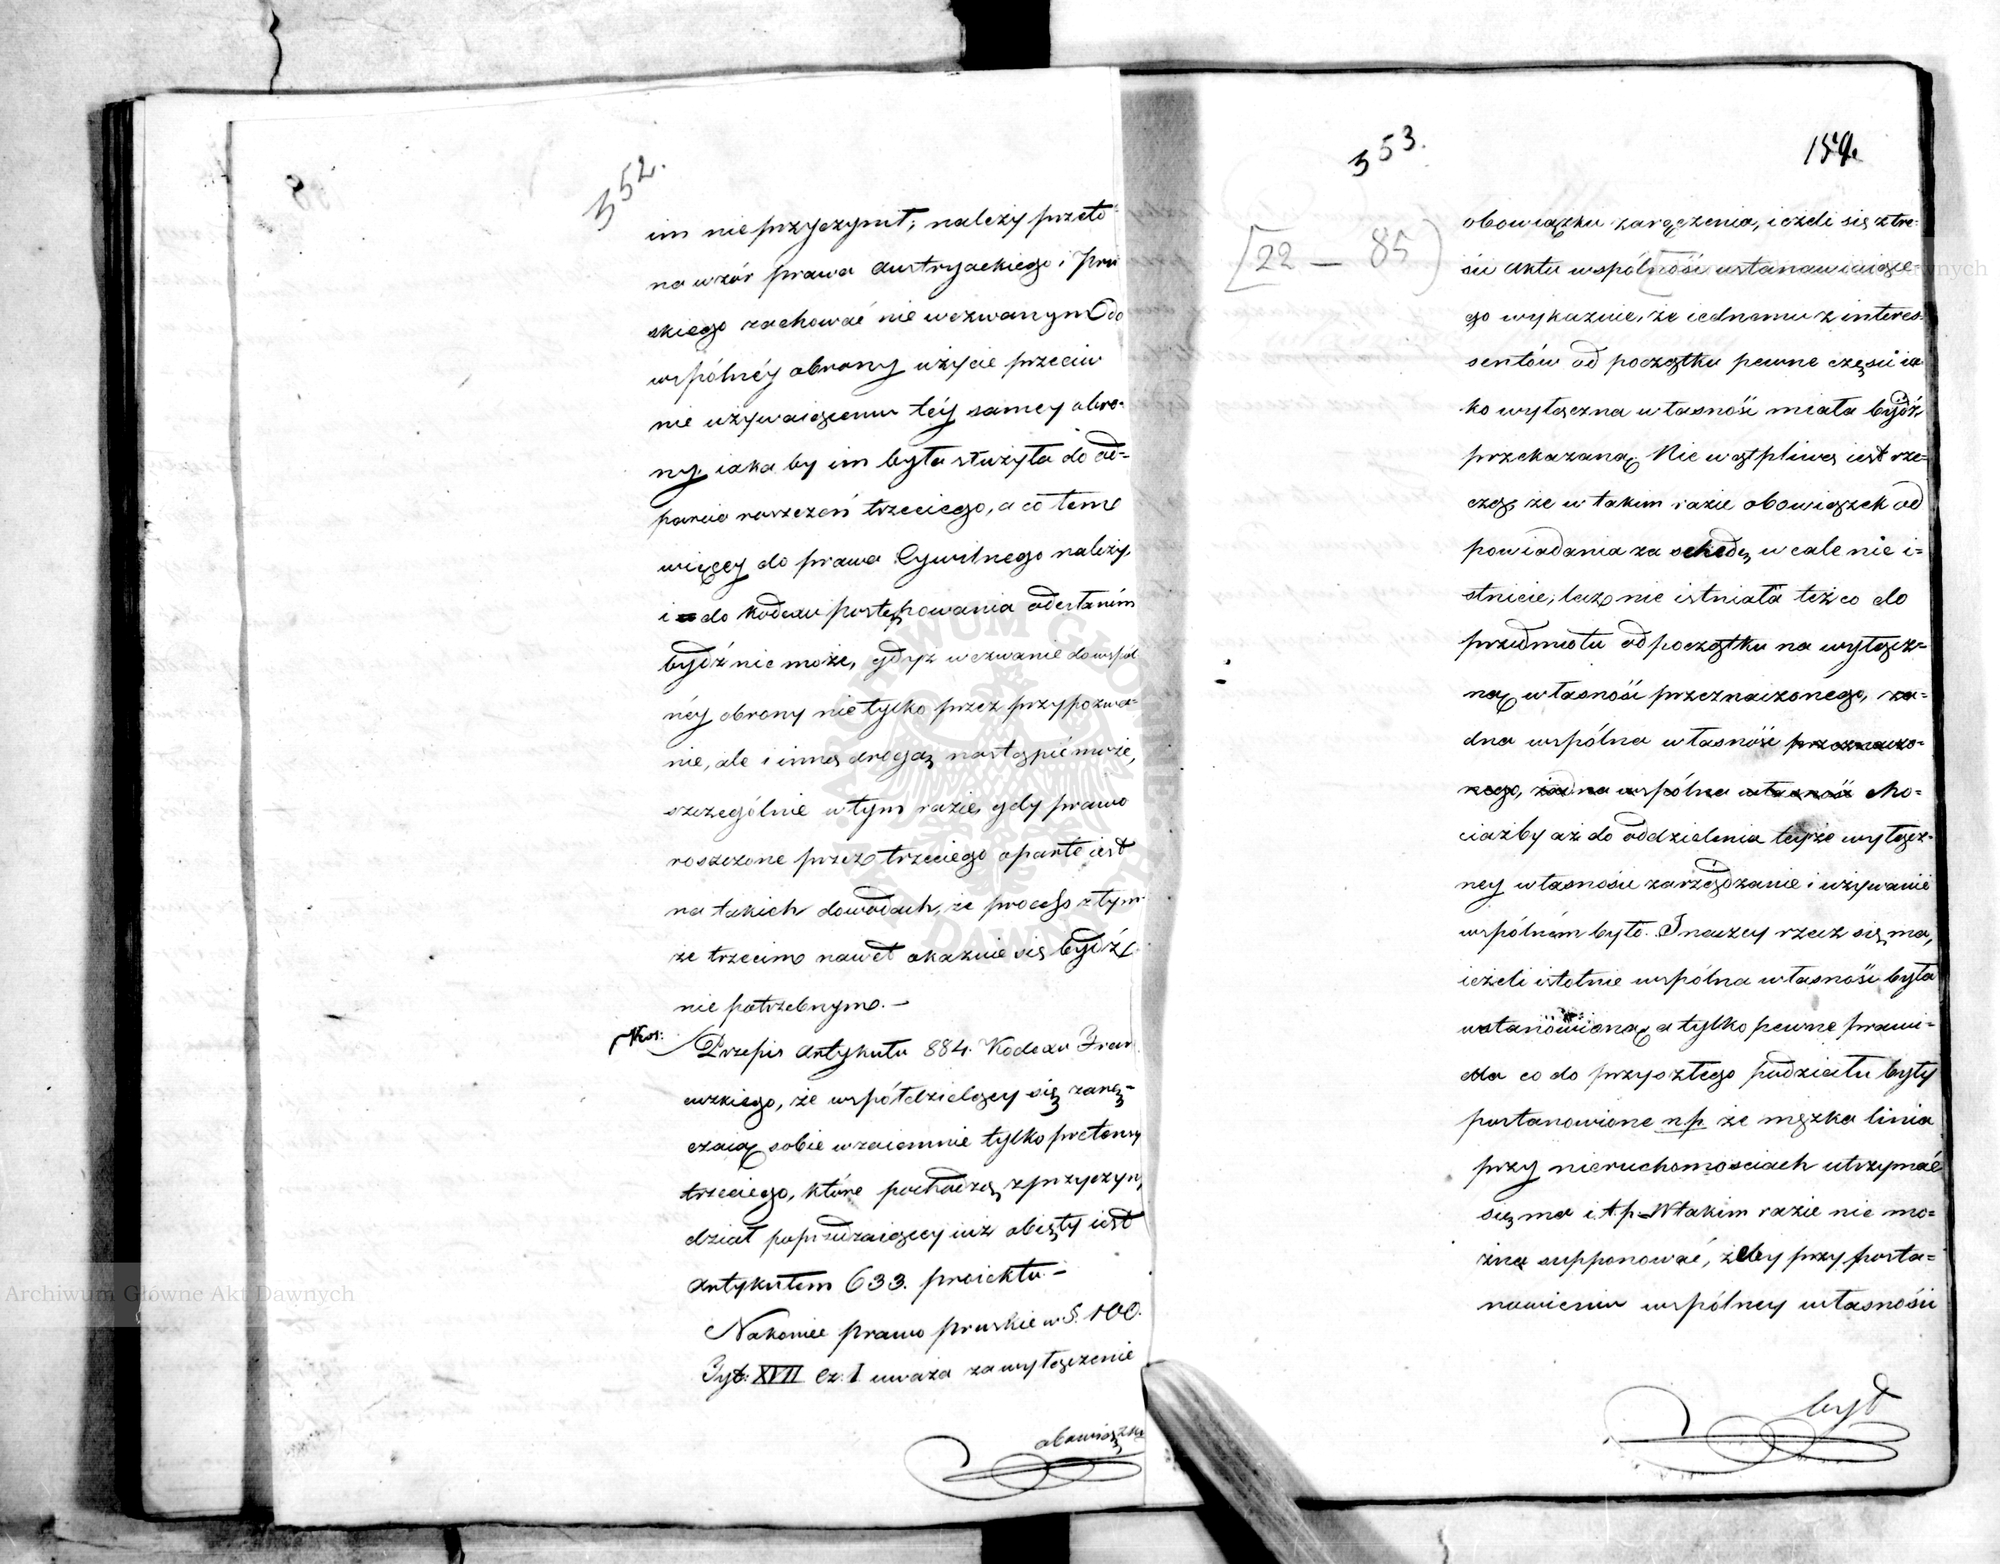 352.
im nie przyczynił; należy przeto
na wzór prawa Austryackiego i Pru
skiego zachować nie wezwanym do
wspólnéy obrony użycie przeciw
nie używaiącemu téy samey obro-
ny iaka by im była służyła do od-
parcia roszczeń trzeciego, a co tem
więcey do prawa Cywilnego należy,
i do Kodexu postępowania odesłaném
bydź nie może, gdyż wezwanie do wspól
néy obrony nie tylko przez przypozwa-
nie, ale i inną drogą nastąpić może,
szczególnie w tym razie, gdy prawo
roszczone przez trzeciego oparte iest
na takich dowodach, że process z tym
że trzecim nawet okazuie się bydź
nie potrzebnym. —
Przepis Artykułu 884. Kodexu Fran
cuzkiego, że współdzielący się zarę-
czaią sobie wzaiemnie tylko pretensy
trzeciego, które pochodzą z przyczyny
dział poprzedzaiącey iuż obięty iest
Artykułem 633. proiektu —
Nakoniec prawo pruskie w §. 100.
Tyt: XVII Cz: I uważa za wyłączenie
obowiązku
353.
159.
[22 — 85)
obowiązku zaręczenia, ieżeli się z tre-
ści Aktu wspólność ustanawiaiące-
go wykazuie, że iednemu z interes-
sentów od początku pewne części ia
ko wyłączna własność miała bydź
przekazaną. Nie wątpliwą iest rze-
czą że w takim razie obowiązek od
powiadania za schedę wcale nie i-
stnieie, lecz nie istniała też co do
przedmiotu od początku na wyłącz-
ną własność przeznaczonego, za-
dna wspólna własność przeznaczo-
nego, żadna wspólna własność cho-
ciażby aż do oddzielenia teyże wyłącz-
ney własności zarządzanie i używanie
wspólném było. Inaczey rzecz się ma,
ieżeli istotnie wspólna własność była
ustanowioną a tylko pewne prawi-
dła co do przyszłego podziału były
postanowione n.p. że męzka linia
przy nieruchomościach utrzymać
się ma i t.p. W takim razie nie mo-
żna supponować, żeby przy posta-
nowieniu wspólney własności
był
Archiwum Główne Akt Dawnych